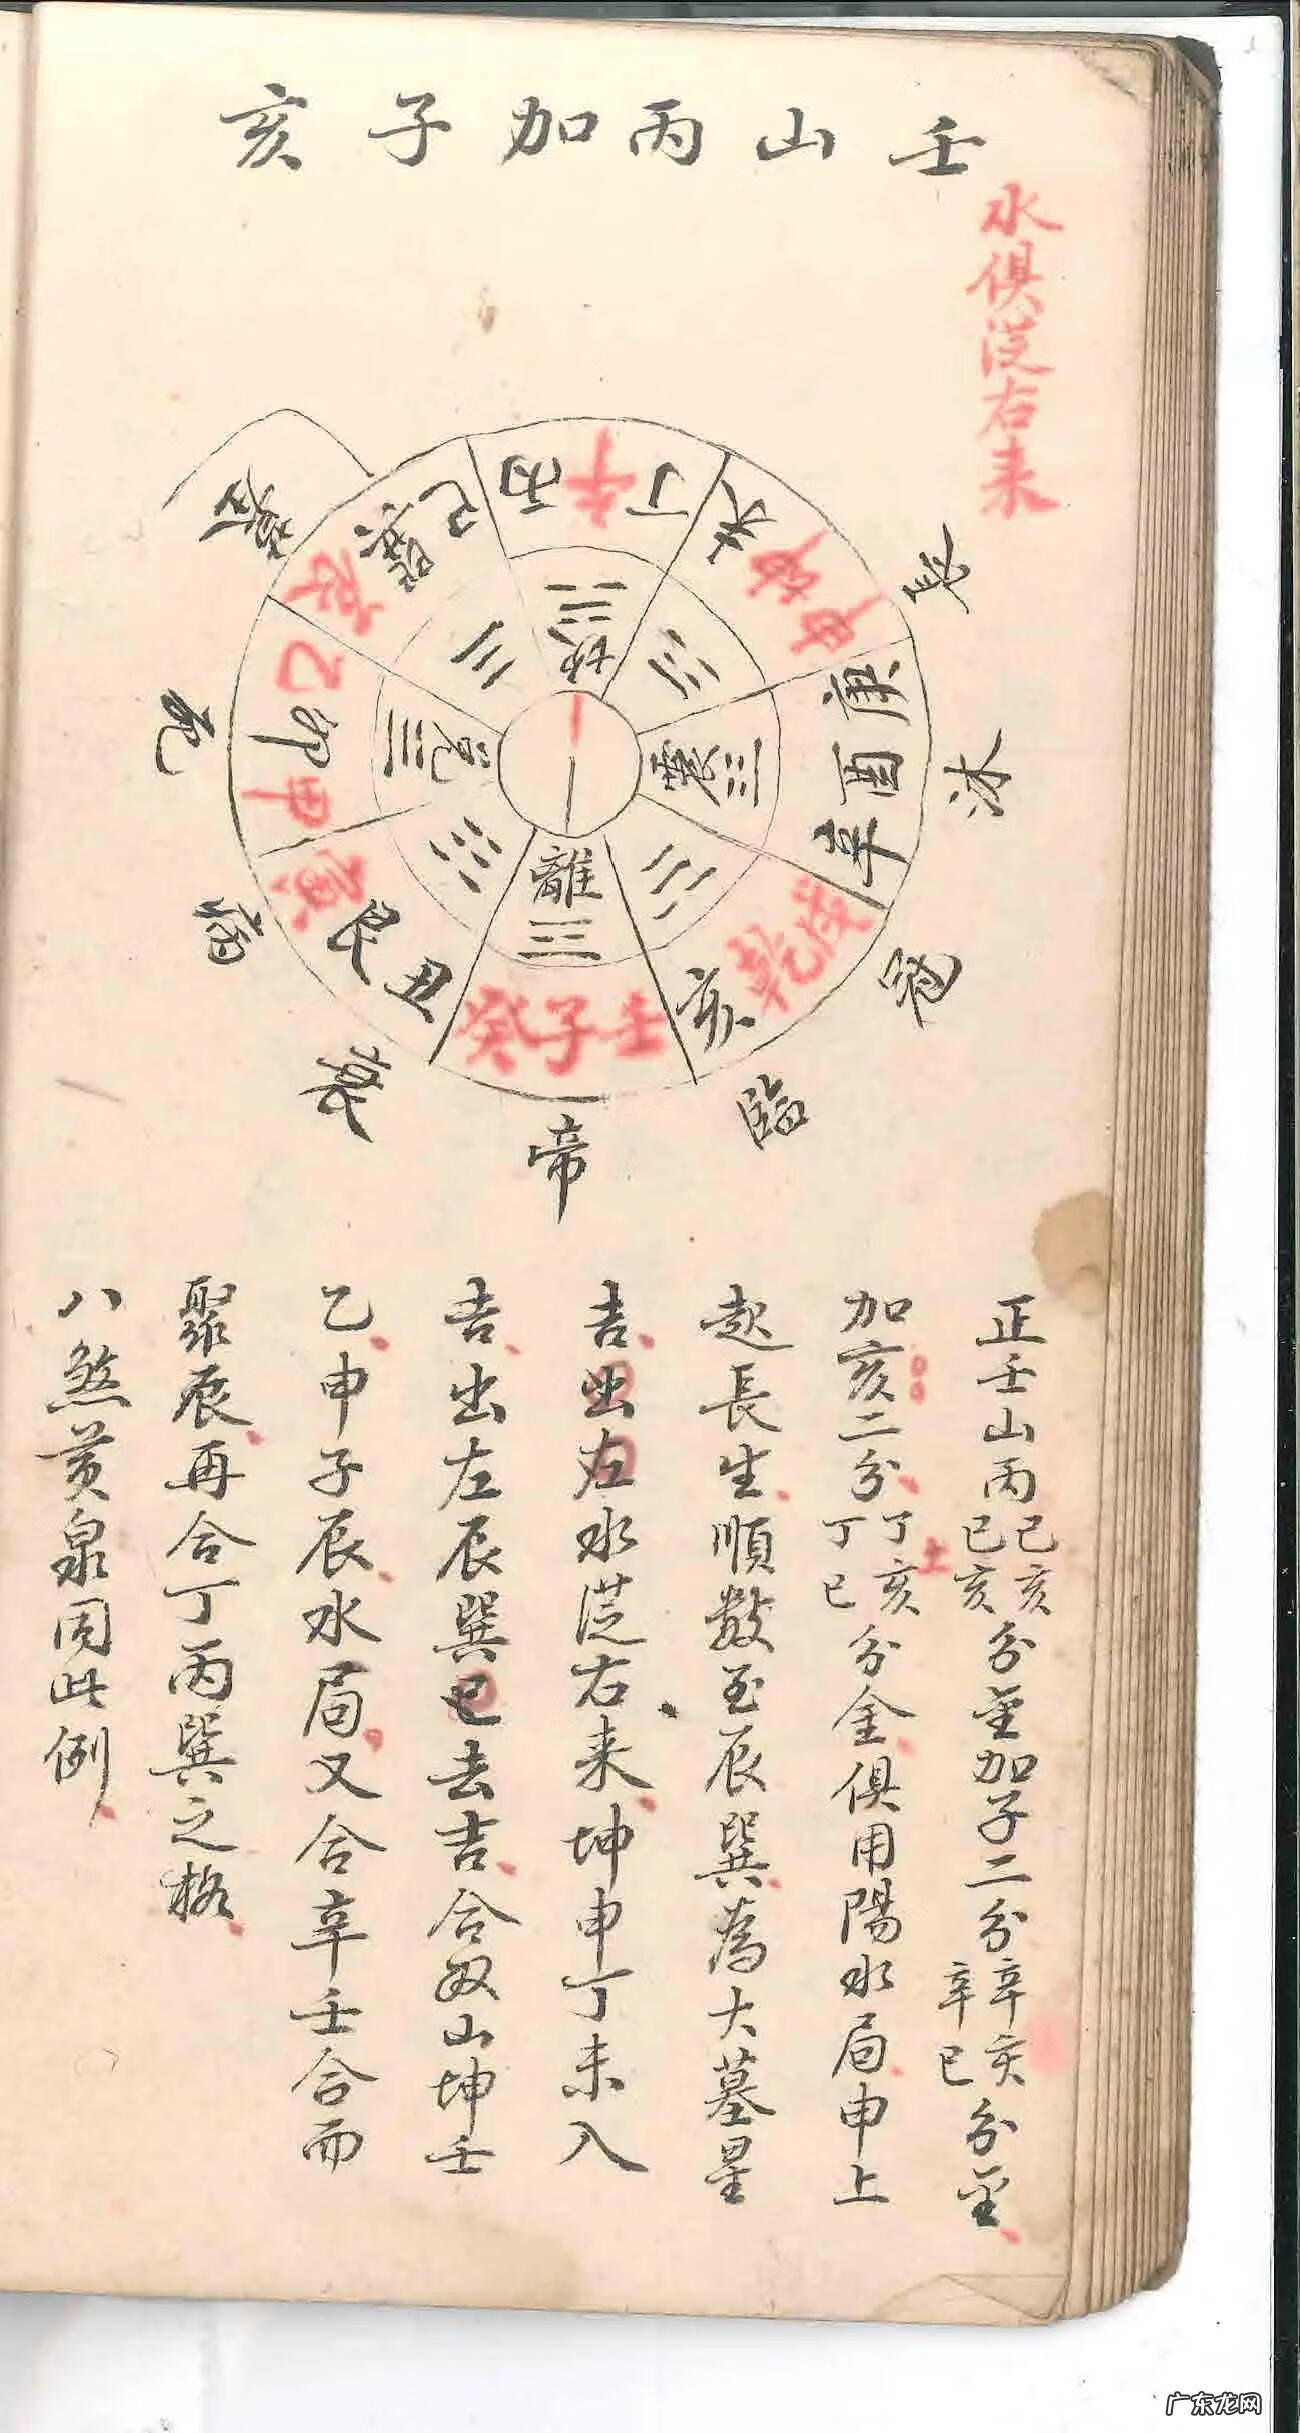 壬山丙加子亥
水俱從右来
丙午丁
未坤申
庚酉辛
戌乾亥
壬子癸
丑艮寅
甲卯乙
辰巽巳
坎
震
離
兑
沐
冠
臨
帝
衰
病
死
墓
正壬山丙己亥己亥分金加子二分辛亥辛巳分金
加亥二分丁亥丁巳分金俱用陽水局申上
起長生順數至辰巽為大墓星
吉出左水從右来坤申丁未入
吉出左辰巽巳去吉合奴山坤壬
乙申子辰水局又合辛壬合而
聚辰再合丁丙巽之格
八煞黄泉同此例
土
广东龙网